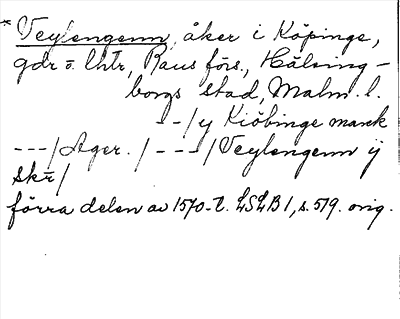 * Veylengenn, åker i Köpinge,
gdr o. lhtr, Raus förs., Hälsing-
borgs stad, Malm. l.
--/y Kiöbinge marck
---/Ager./---/Veylengenn ij
skr/
förra delen av 1570-t. LSLB 1, s. 519. orig.